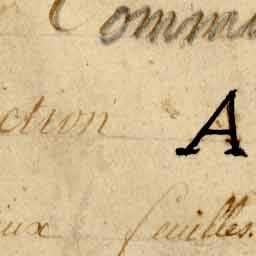 Commu
ction A
ux feuilles.